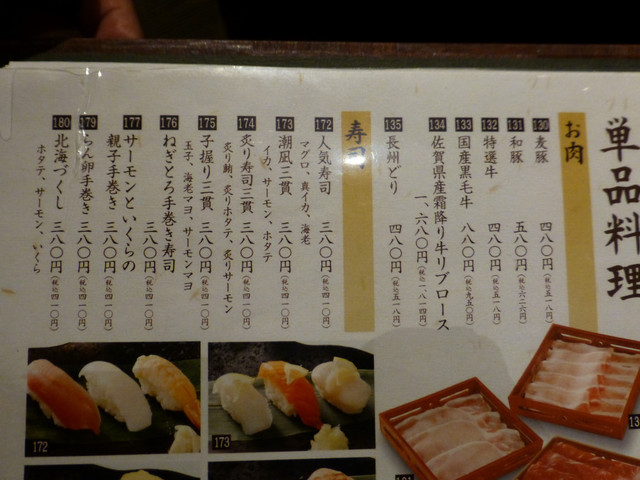 単品料理
お肉
130 麦豚 四八〇円(税込五一八円)
131 和豚 五八〇円(税込六二六円)
132 特選牛 四八〇円(税込五一八円)
133 国産黒毛牛 八八〇円(税込九五〇円)
134 佐賀県産霜降り牛リブロース
一、六八〇円(税込一、八一四円)
135 長州どり 四八〇円(税込五一八円)
寿司
172 人気寿司 三八〇円(税込四一〇円)
マグロ、真イカ、海老
173 潮凪三貫 三八〇円(税込四一〇円)
イカ、サーモン、ホタテ
174 炙り寿司三貫 三八〇円(税込四一〇円)
炙り鮪、炙りホタテ、炙りサーモン
175 子握り三貫 三八〇円(税込四一〇円)
玉子、海老マヨ、サーモンマヨ
176 ねぎとろ手巻き寿司
三八〇円(税込四一〇円)
177 サーモンといくらの
親子手巻き 三八〇円(税込四一〇円)
179 らん卵手巻き 三八〇円(税込四一〇円)
180 北海づくし 三八〇円(税込四一〇円)
ホタテ、サーモン、いくら
172
173